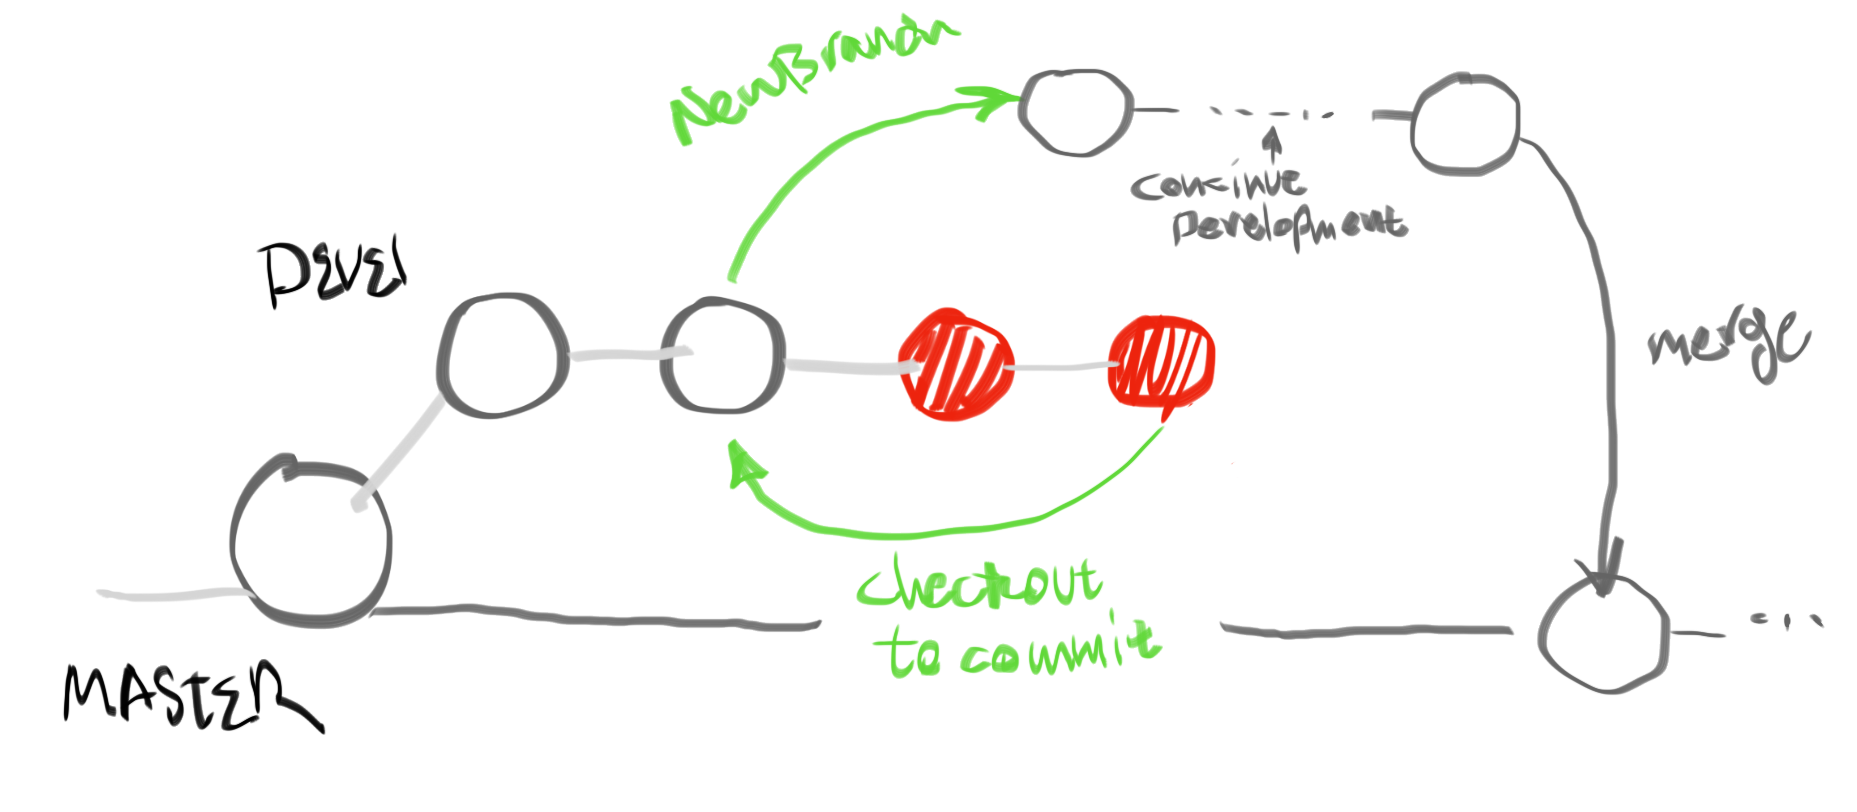 NewBranch
continue
Development
DEVEL
merge
checkout
to commit
MASTER